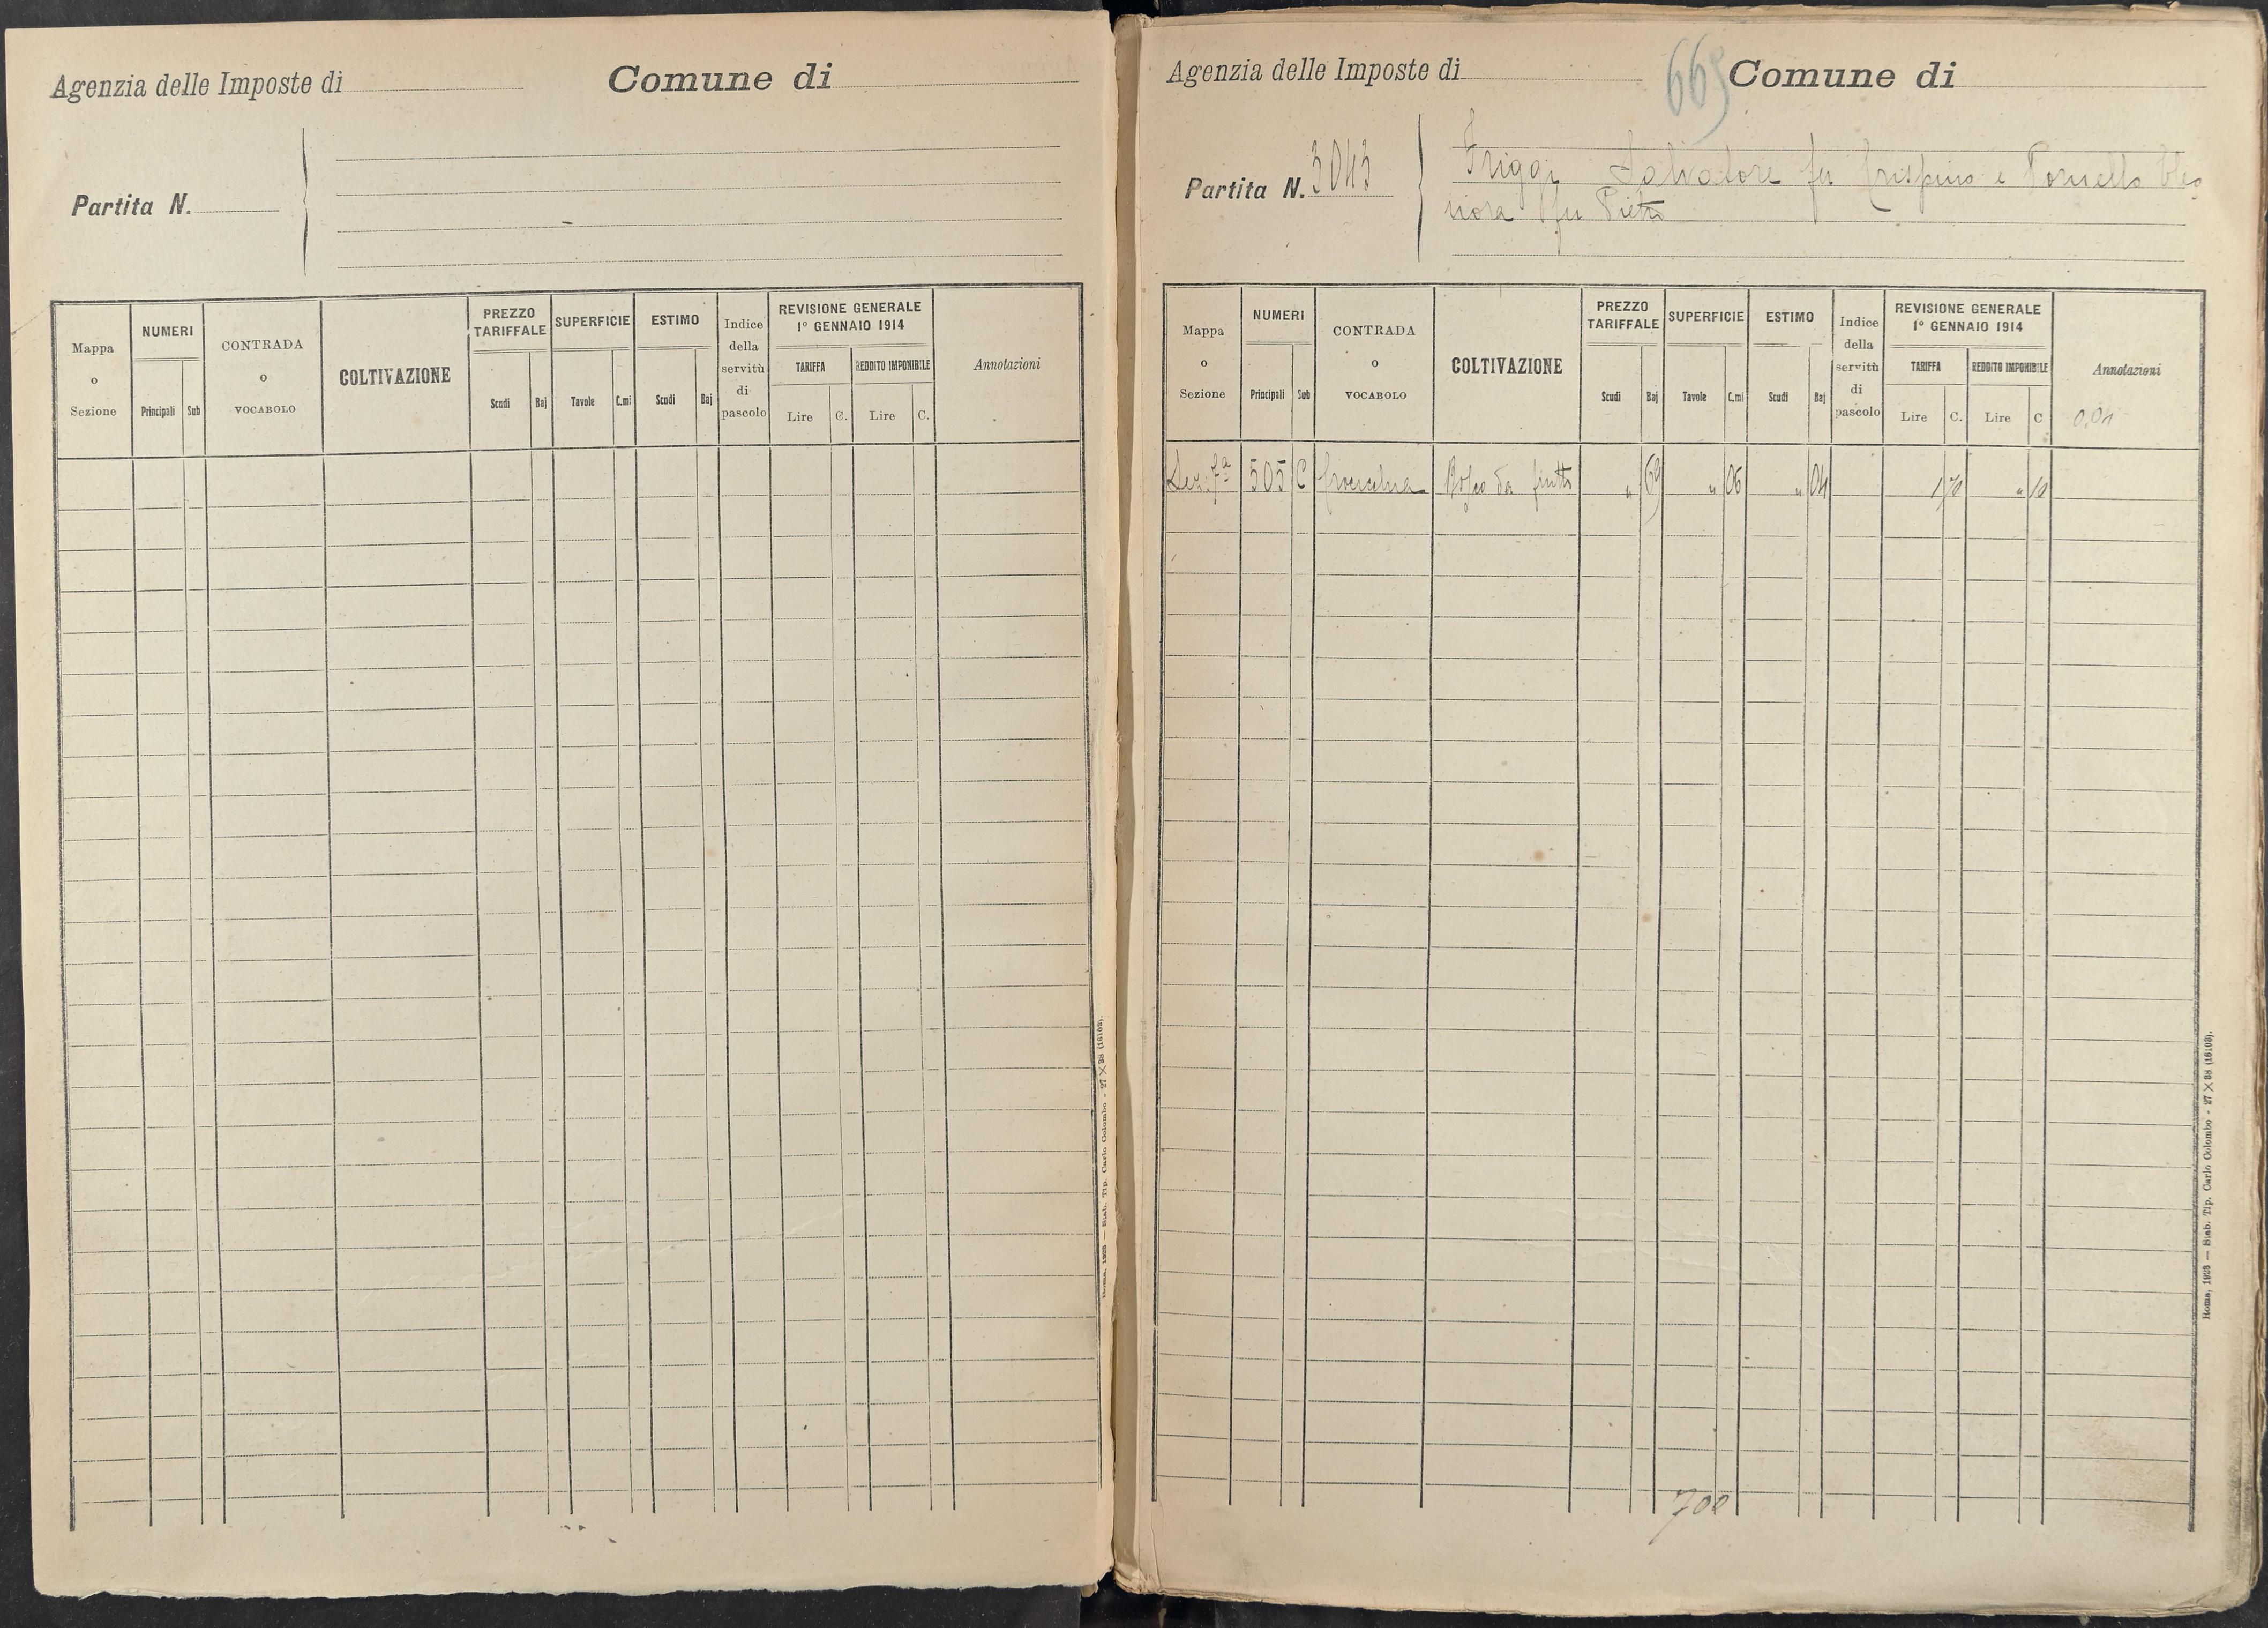 Agenzia delle Imposte di
Comune di
Partita N.
Mappa o Sezione
NUMERI
Principali
Sub
CONTRADA o VOCABOLO
COLTIVAZIONE
PREZZO TARIFFALE
Scudi
Baj
SUPERFICIE
Tavole
C.mi
ESTIMO
Scudi
Baj
Indice della servitù di pascolo
REVISIONE GENERALE
1° GENNAIO 1914
TARIFFA
REDDITO IMPONIBILE
Lire
C.
Lire
C.
Annotazioni
Roma, 1923 — Stab. Tip. Carlo Colombo - 27 X 38 (16103).
Agenzia delle Imposte di
669
Comune di
Partita N. 3043
Friggi Salvatore fu Crispino e
nora fu Pietro
Mappa o Sezione
NUMERI
Principali
Sub
CONTRADA o VOCABOLO
COLTIVAZIONE
PREZZO TARIFFALE
Scudi
Baj
SUPERFICIE
Tavole
C.mi
ESTIMO
Scudi
Baj
Indice della servitù di pascolo
REVISIONE GENERALE
1° GENNAIO 1914
TARIFFA
REDDITO IMPONIBILE
Lire
C.
Lire
C
Annotazioni
0,04
Sez. 505 C da frutto " 69 " 06 " 04 1 70 " 10
700
Roma, 1923 — Stab. Tip. Carlo Colombo - 27 X 38 (16103).